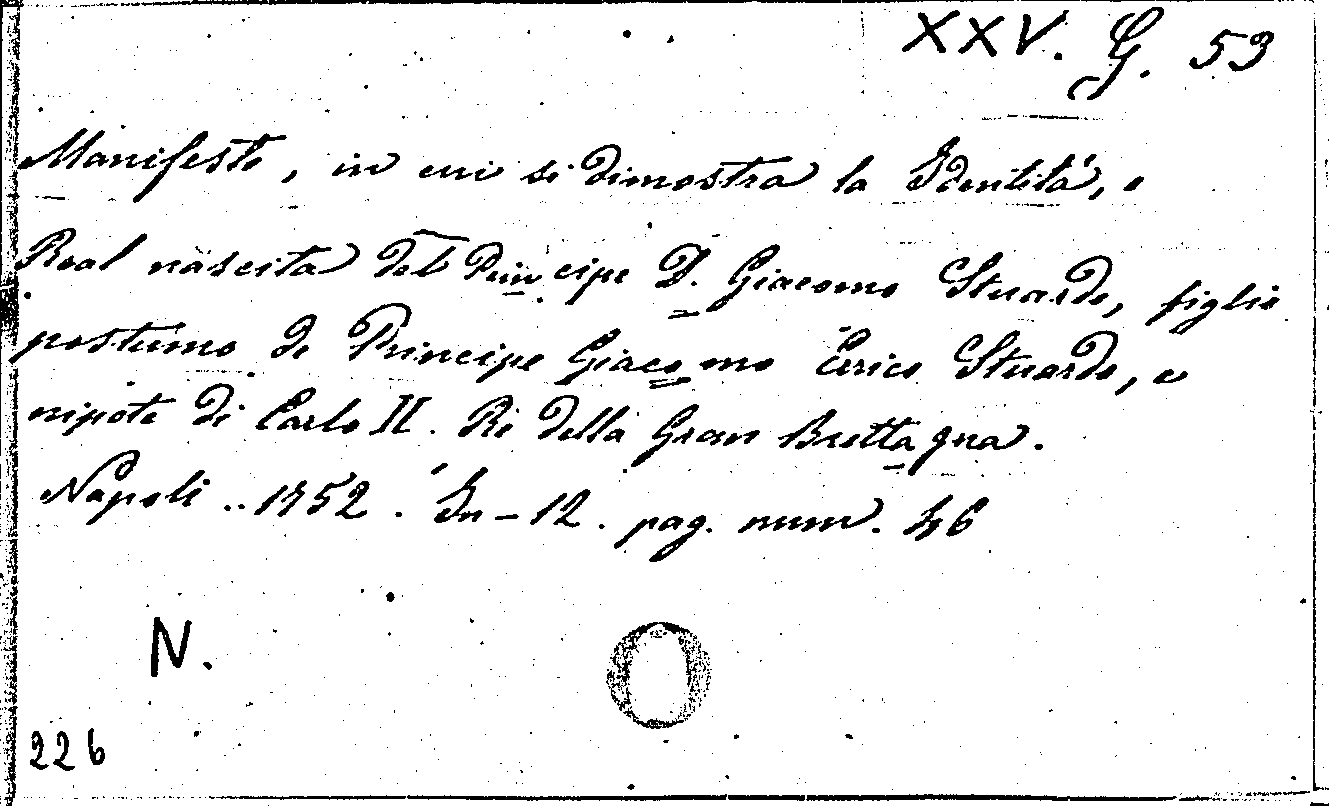 XXV. G. 53
Manifesto, in cui si dimostra la Identità, e
Real nascita del Principe D. Giacomo Stuardo, figlio
postumo di Principe Giacomo Errico Stuardo, e
nipote di Carlo II. Re della Gran Brettagna.
Napoli .. 1752. In-12. pag. num. 46
N.
226